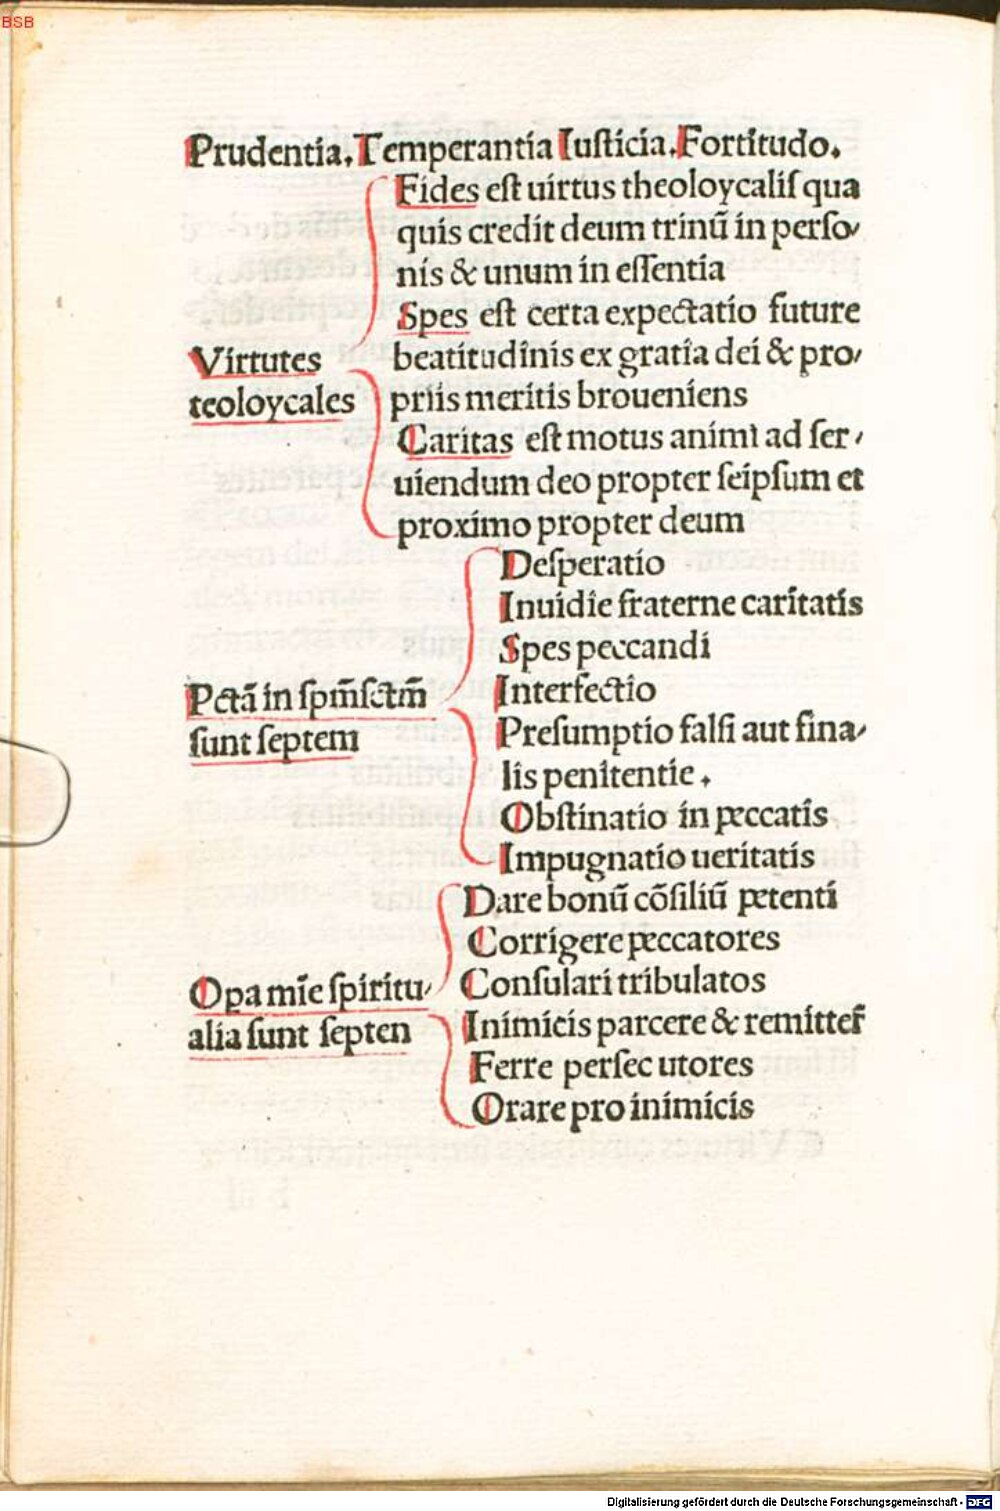 BSB
Prudentia. Temperantia Iusticia. Fortitudo.
Fides eſt uirtus theoloycaliſ qua
quis credit deum trinū in perſo⸗
nis & unum in eſſentia
Spes eſt certa expectatio future
Virtutes
beatitudinis ex gratia dei & pro⸗
teoloycales
priis meritis broueniens
Caritas eſt motus animi ad ſer⸗
uiendum deo propter ſeipſum et
proximo propter deum
Deſperatio
Inuidie fraterne caritatis
Spes peccandi
Pctā in ſpm̄ſctm̄
Interfectio
ſunt ſeptem
Preſumptio falſi aut fina⸗
lis penitentie.
Obſtinatio in peccatis
Impugnatio ueritatis
Dare bonū cōſiliū petenti
Corrigere peccatores
Opa mīe ſpiritu⸗
Conſulari tribulatos
alia ſunt ſepten
Inimicis parcere & remitter̄
Ferre perſec utores
Orare pro inimicis
Digitalisierung gefördert durch die Deutsche Forschungsgemeinschaft - DFG